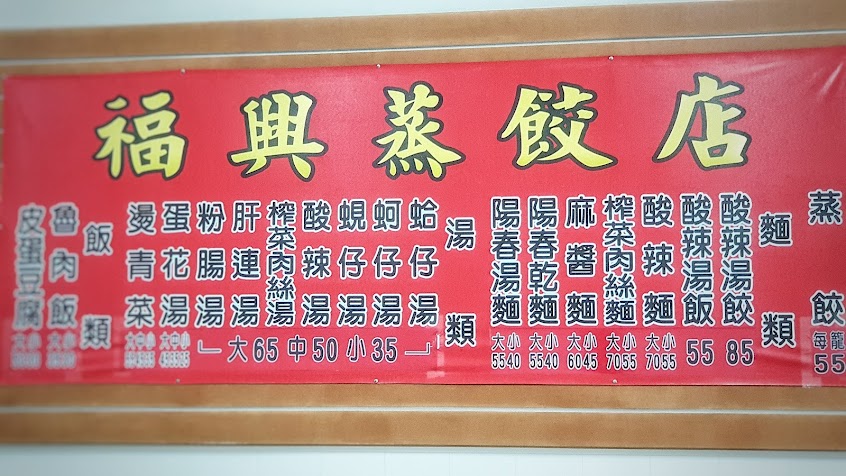 福興蒸餃店
蒸餃
每籠
55
麵類
酸辣湯餃
85
酸辣湯飯
55
酸辣麵
大小
7055
榨菜肉絲麵
大小
7055
麻醬麵
大小
6045
陽春乾麵
大小
5540
陽春湯麵
大小
5540
湯類
蛤仔湯
蚵仔湯
蜆仔湯
酸辣湯
榨菜肉絲湯
肝連湯
粉腸湯
大65中50小35
蛋花湯
大中小
燙青菜
大中小
飯類
魯肉飯
大小
皮蛋豆腐
大小